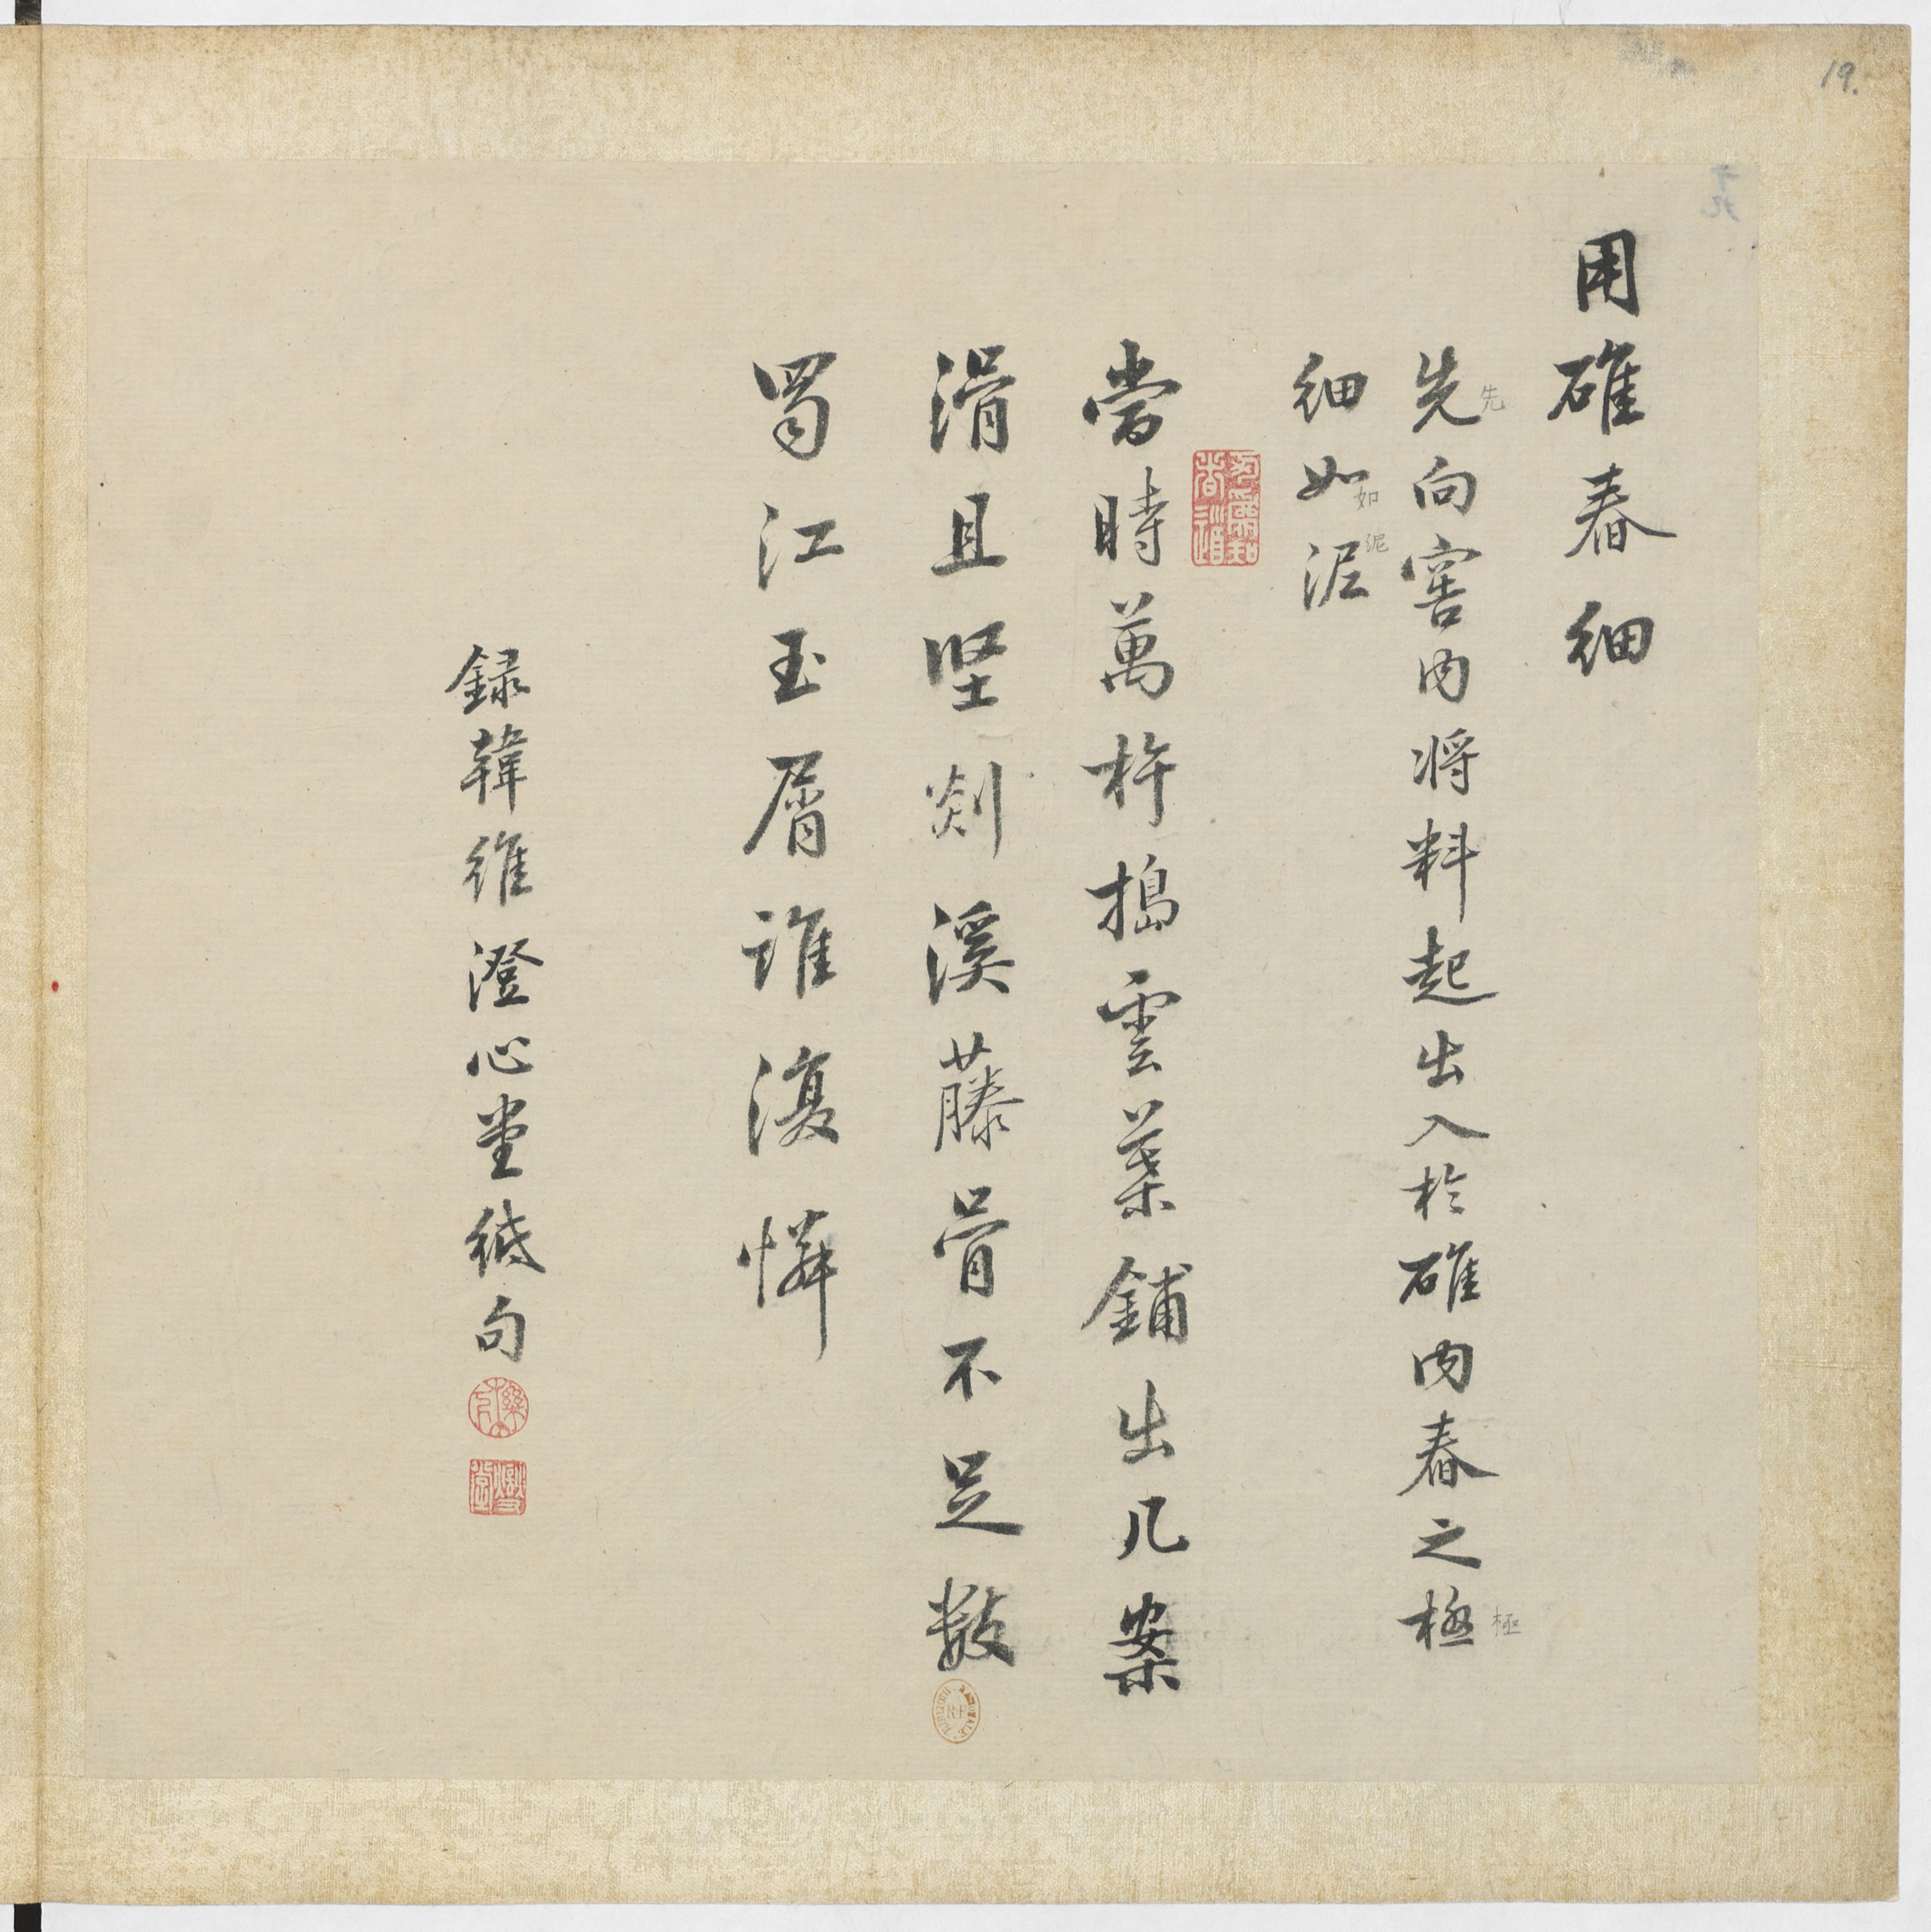 19.
十九
用碓舂细
先向窖内将料起出入於碓内舂之極
先
極
细如泥
如
泥
當時萬杵搗雲葉鋪出几案
滑且坚剡溪藤骨不足数
蜀江玉屑谁復憐
録韓維澄心堂紙句